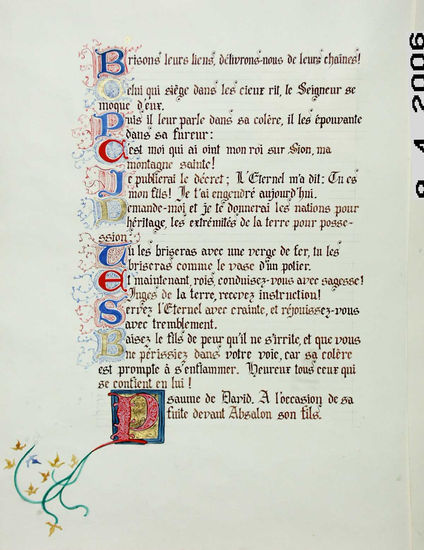 Brisons leurs liens, délivrons-nous de leurs chaînes!
Celui qui siège dans les cieux rit, le Seigneur se
moque d'eux.
Puis il leur parle dans sa colère, il les épouvante
dans sa fureur:
C'est moi qui ai oint mon roi sur Sion, ma
montagne sainte!
Je publierai le décret; L'Eternel m'a dit: Tu es
mon fils! Je t'ai engendré aujourd'hui.
Demande-moi, et je te donnerai les nations pour
héritage, les extrémités de la terre pour posse-
ssion
Tu les briseras avec une verge de fer, tu les
briseras comme le vase d'un potier.
Et maintenant, rois, conduisez-vous avec sagesse!
Juges de la terre, recevez instruction!
Servez l'Eternel avec crainte, et réjouissez-vous
avec tremblement.
Baisez le fils de peur qu'il ne s'irrite, et que vous
ne périssiez dans votre voie, car sa colère
est prompte à s'enflammer. Heureux tous ceux qui
se confient en lui!
Psaume de David. A l'occasion de sa
fuite devant Absalon son fils.
9 4 2006